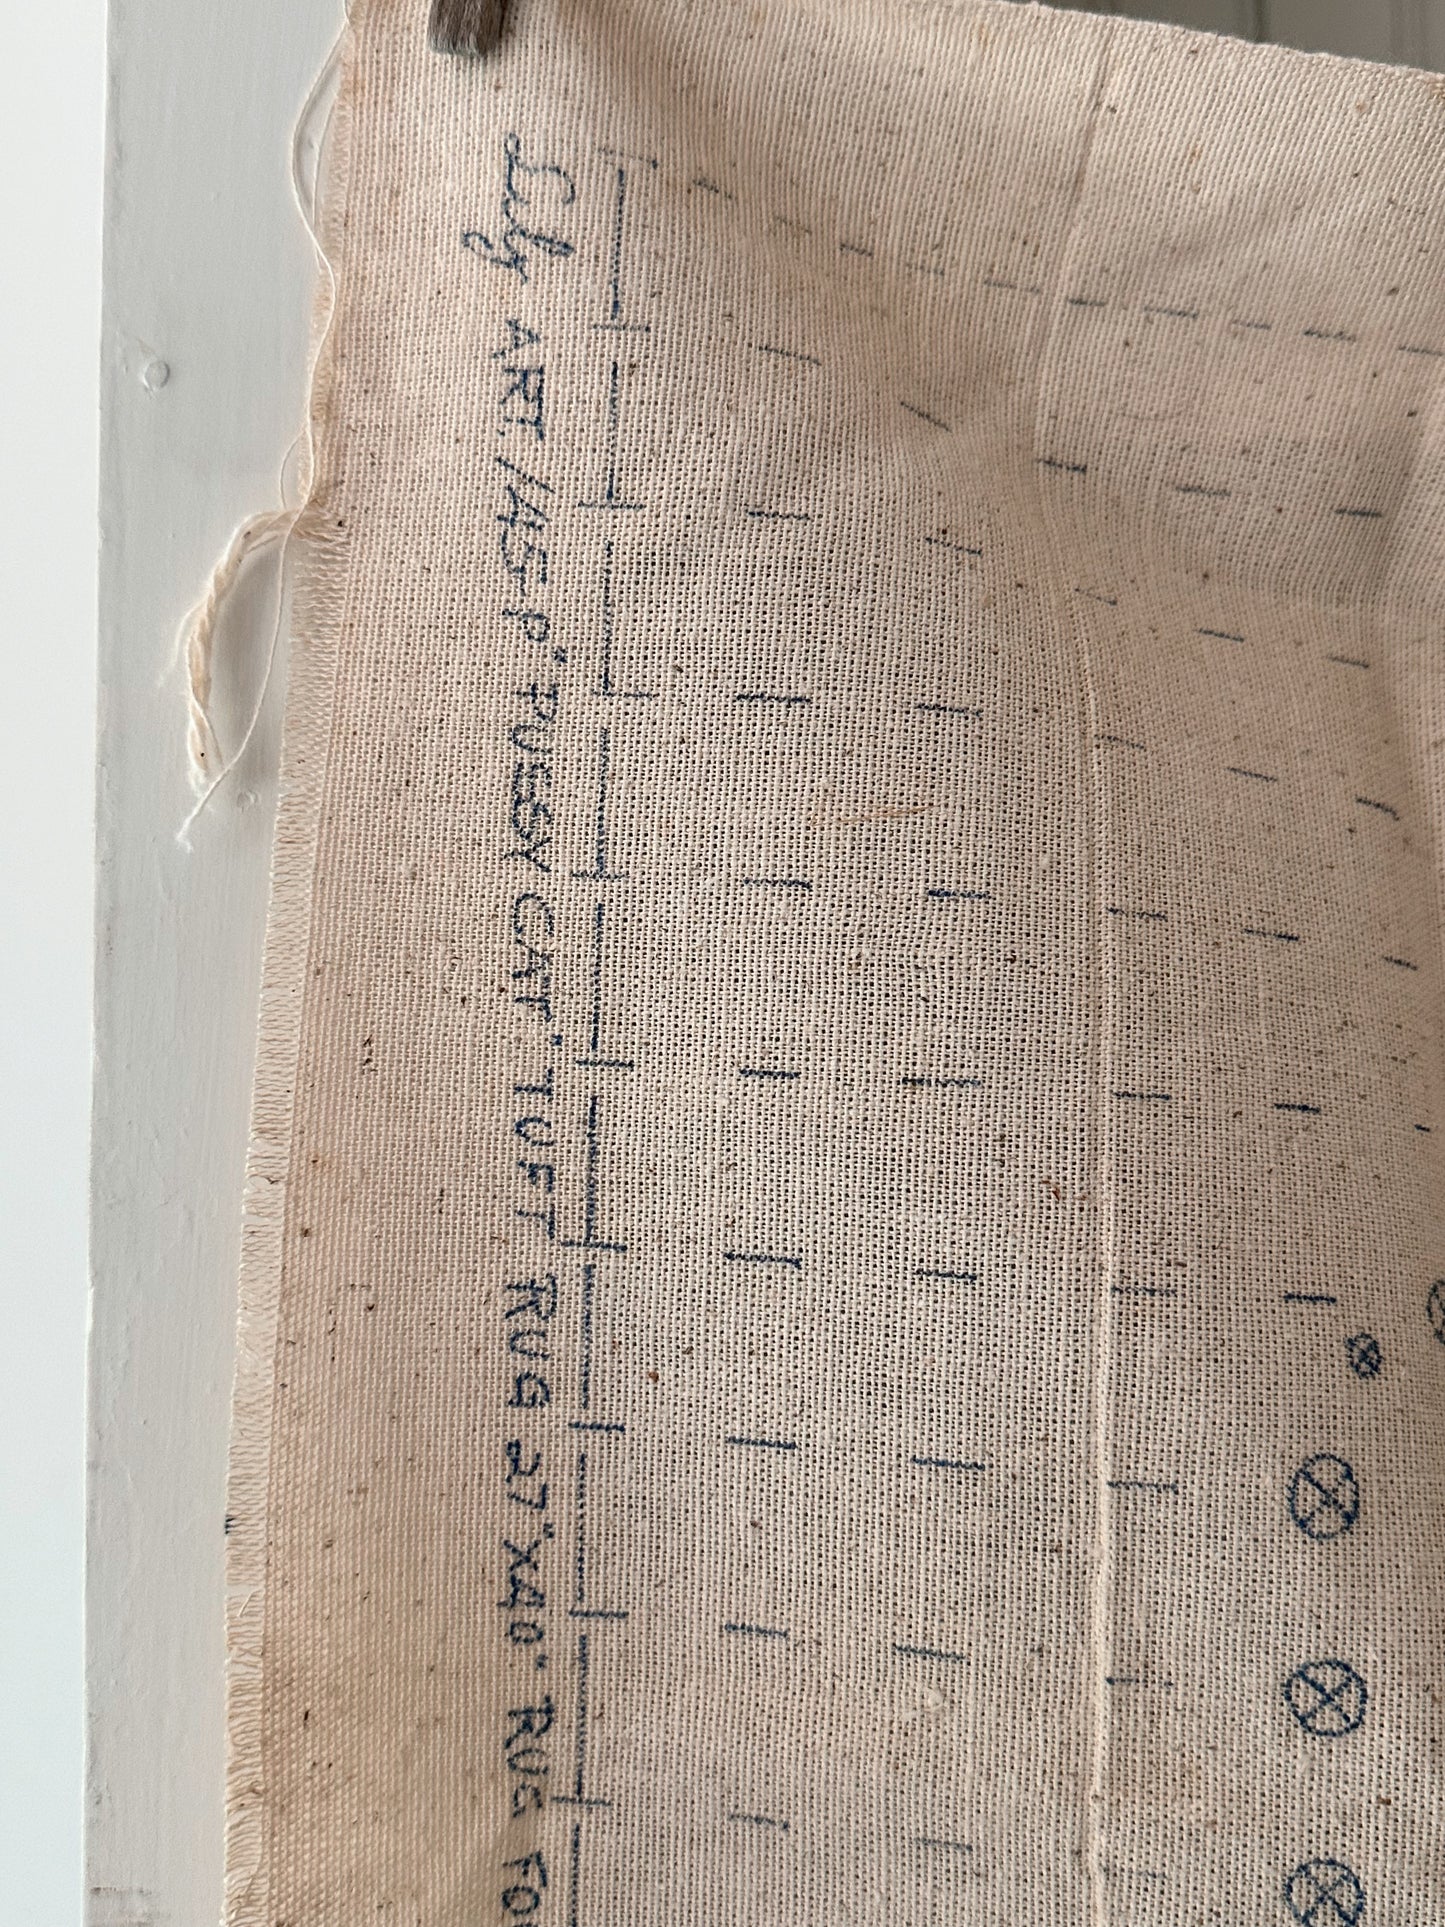 Lily ART. 145-P "PUSSY CAT" TUFT RUG 27"X40" RUG